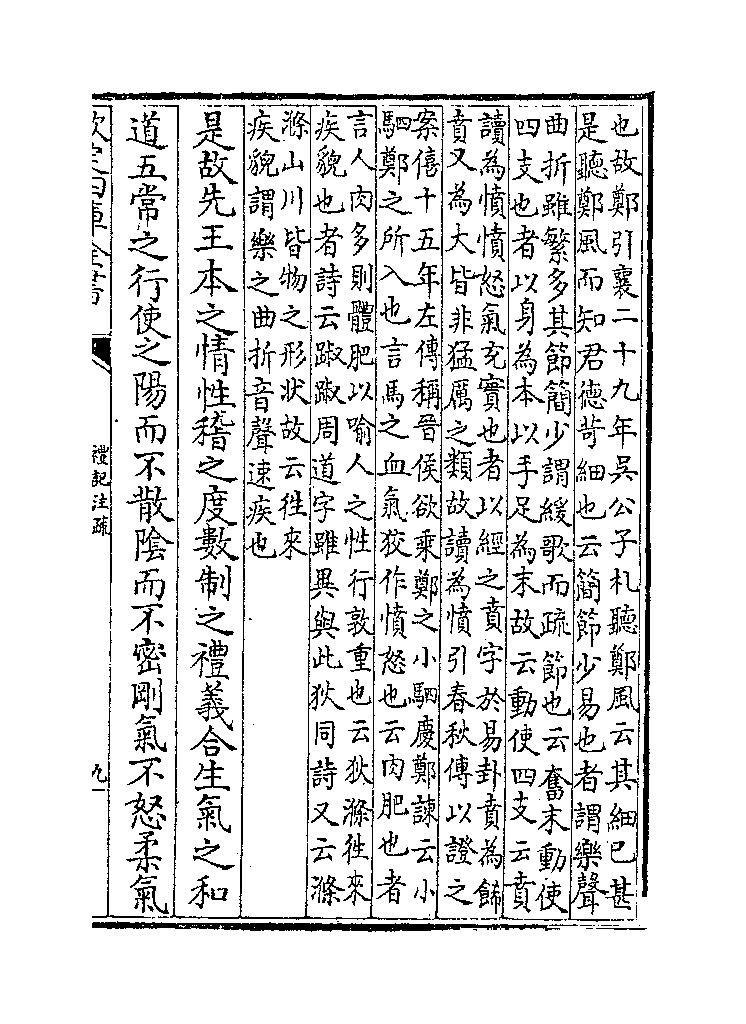 也故鄭引襄二十九年吳公子札聽鄭風云其細已甚
是聽鄭風而知君德苛細也云簡節少易也者謂樂聲
曲折雖繁多其節簡少謂緩歌而疏節也云奮末動使
四支也者以身為本以手足為末故云動使四支云賁
讀為憤憤怒氣充實也者以經之賁字於易卦賁為飾
賁又為大皆非猛厲之類故讀為憤引春秋傳以證之
案僖十五年左傳稱晉侯欲乘鄭之小駟慶鄭諫云小
駟鄭之所入也言馬之血氣狡作憤怒也云肉肥也者
言人肉多則體肥以喻人之性行敦重也云狄滌徃來
疾貌也者詩云踧踧周道字雖異與此狄同詩又云滌
滌山川皆物之形狀故云徃來
疾貌謂樂之曲折音聲速疾也
是故先王本之情性稽之度數制之禮義合生氣之和
道五常之行使之陽而不散陰而不密剛氣不怒柔氣
欽定四庫全書
禮記注疏
九